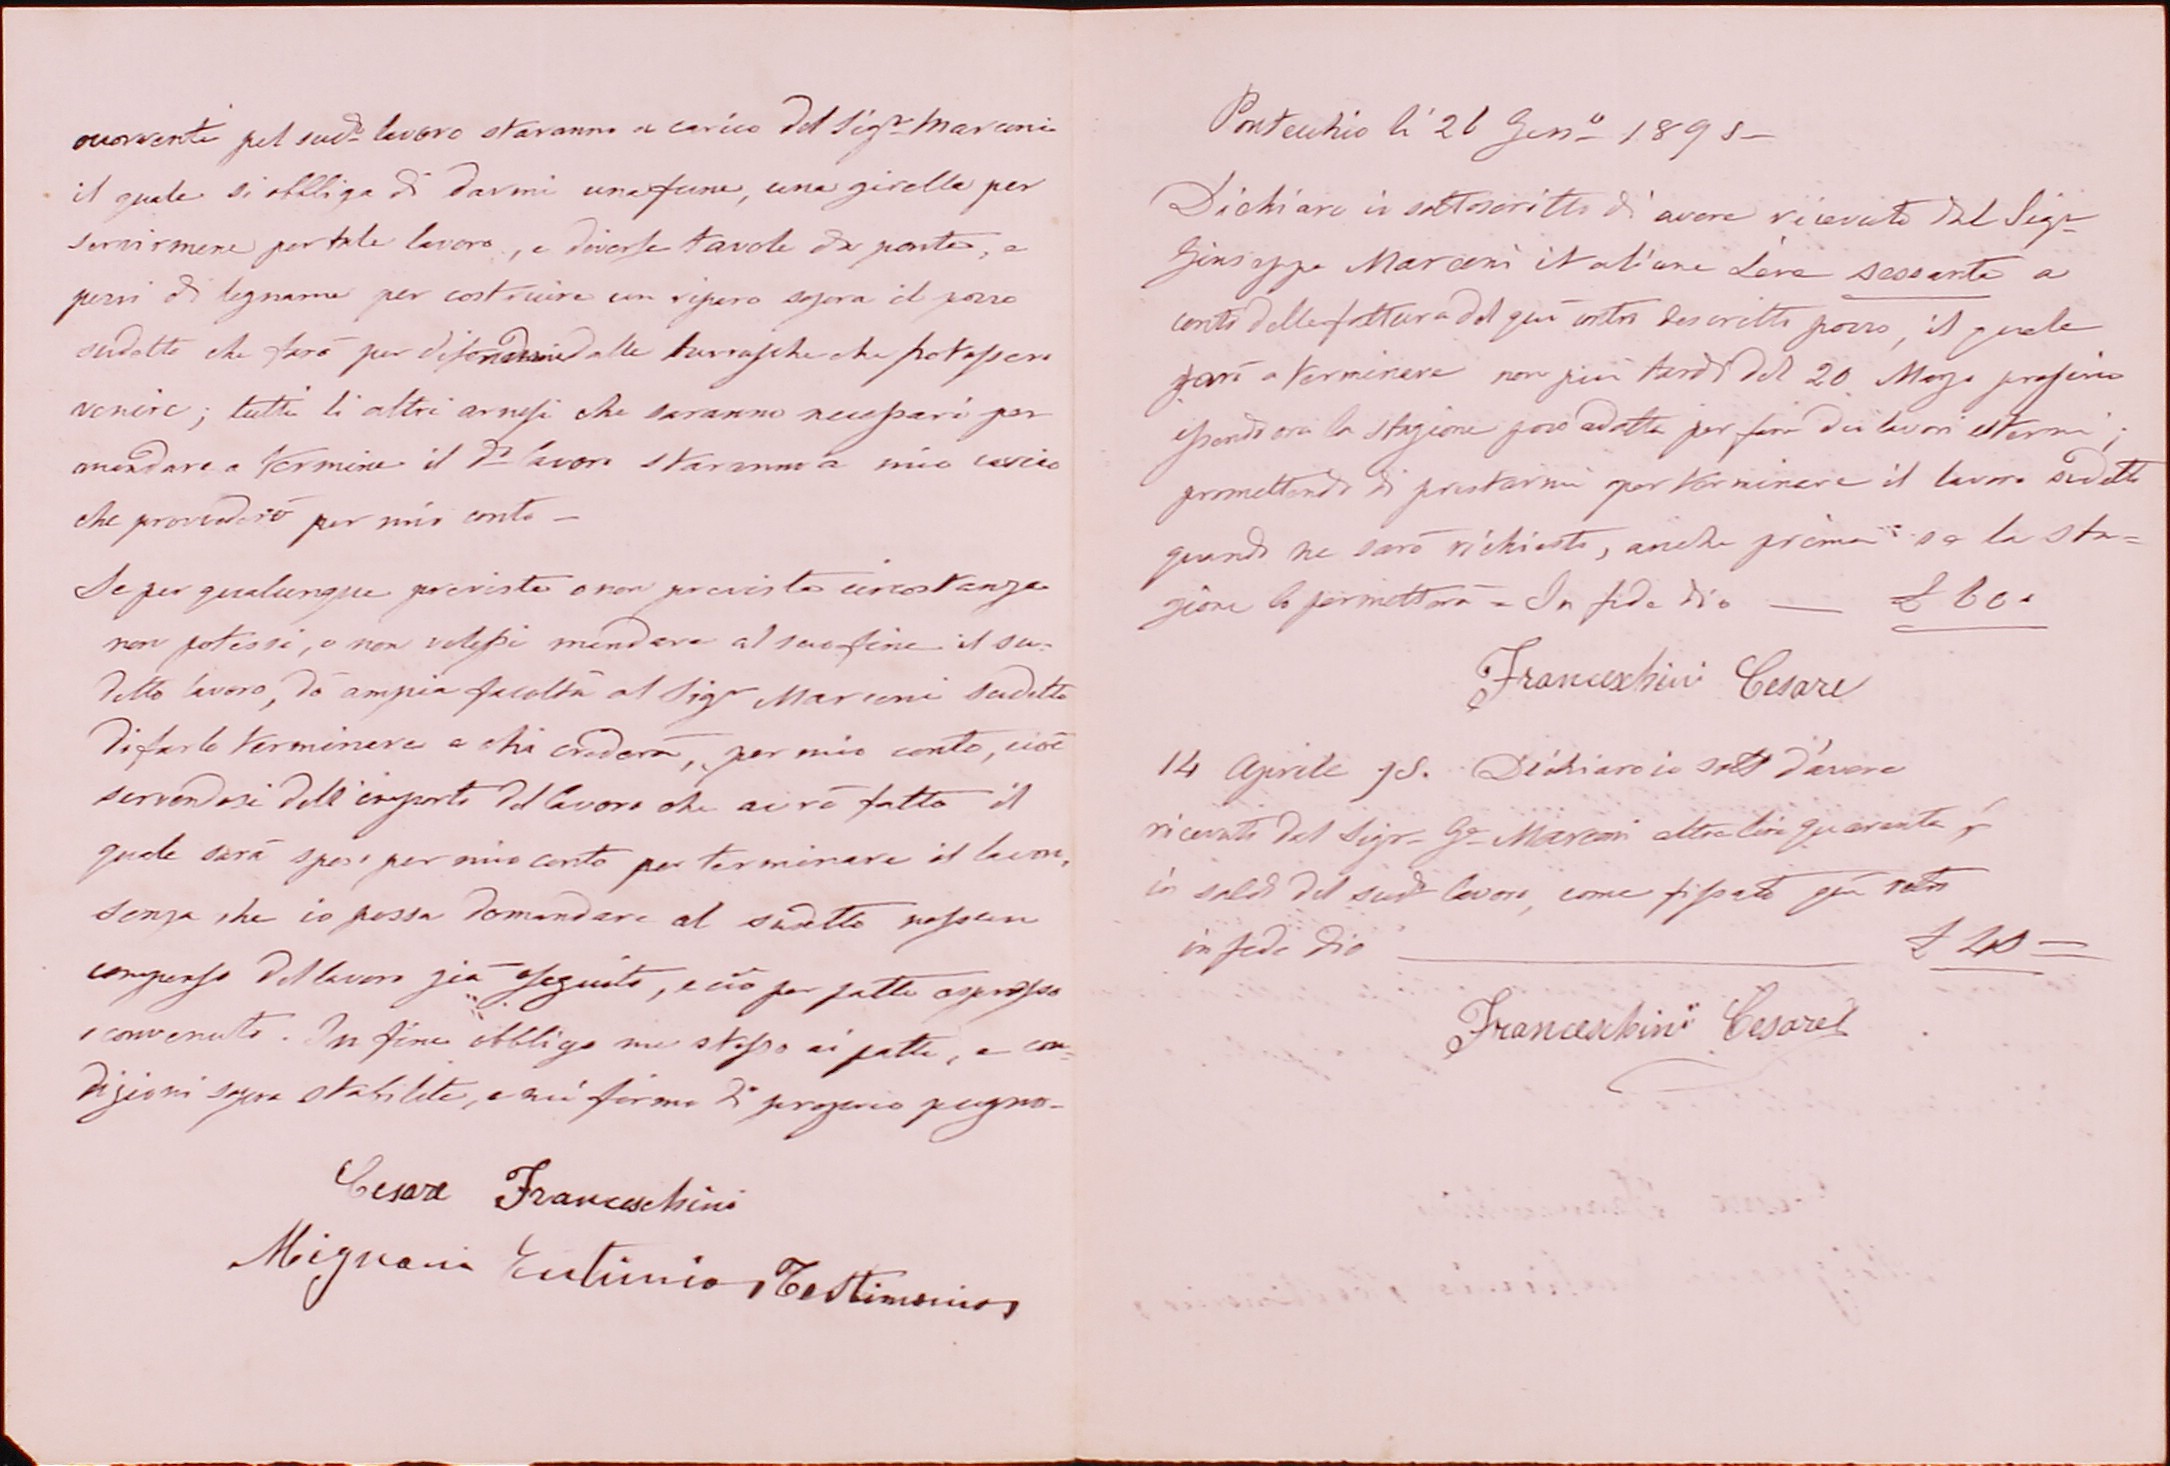 occorrenti pel sud.º lavoro staranno a carico del Sig.r Marconi
il quale si obbliga di darmi una fune, una girella per
servirmene per tale lavoro, e diverse tavole da ponte, e
pezzi di legname per costruire un riparo sopra il pozzo
sudetto che farò per difendermi dalle burrasche che potessero
venire; tutti li altri arnesi che saranno necessari per
mandare a termine il d.º lavoro staranno a mio carico
che provvederò per mio conto —
Se per qualunque prevista o non prevista circostanza
non potessi, o non volessi mandare al suo fine il su-
detto lavoro, dò ampia facoltà al Sig.r Marconi sudetto
di farlo terminare a chi crederà, per mio conto, cioè
servendosi dell'importo del lavoro che avrò fatto il
quale sarà speso per mio conto per terminare il lavoro,
senza che io possa domandare al sudetto nessun
compenso del lavoro già eseguito, e ciò per patto espresso
e convenuto. In fine obbligo me stesso ai patti, e con-
dizioni sopra stabilite, e mi firmo di proprio pugno —
Cesare Franceschini
Mignani Eutimio, Testimonio,
Pontecchio li 26 Gen.º 1895 —
Dichiaro io sottoscritto di avere ricevuto dal Sig.r
Giuseppe Marconi italiane Lire sessanta a
conto della fattura del qui contro descritto pozzo, il quale
farò a terminare non più tardi del 20 Marzo prossimo
essendo ora la stagione poco adatta per fare dei lavori esterni;
promettendo di prestarmi per terminare il lavoro sudetto
quando ne sarò richiesto, anche prima se la sta=
gione lo permetterà = In fede dico — £ 60.
Franceschini Cesare
14 Aprile 95. Dichiaro io sott.º d'avere
ricevuto dal Sig.r G.e Marconi altre lire quaranta
in saldo del sud.º lavoro, come fissato qui retro
in fede dico — £ 40 =
Franceschini Cesare